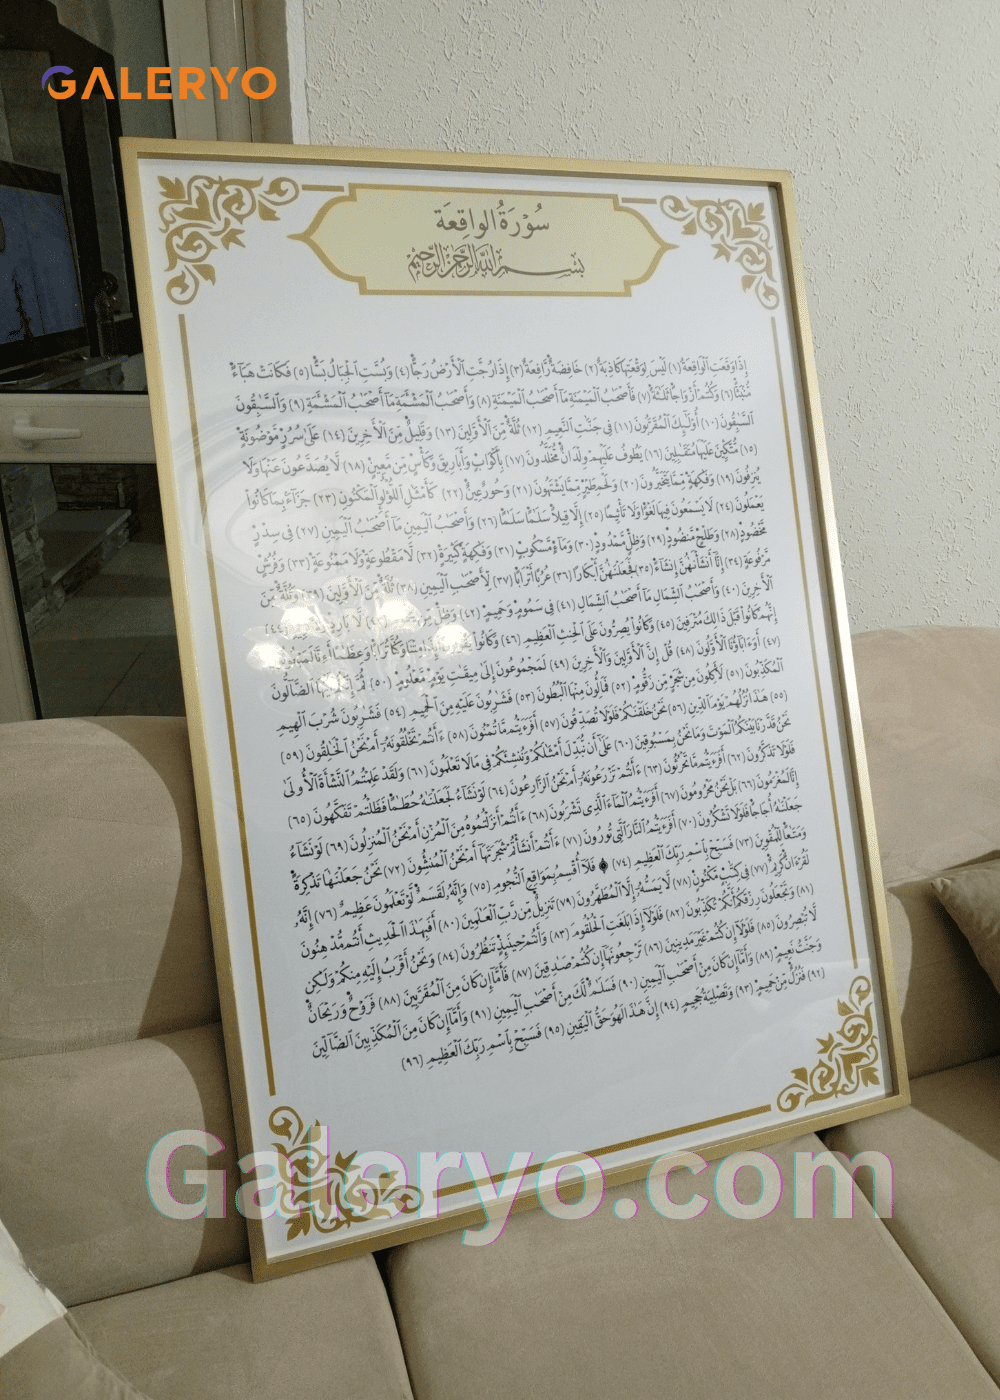 GALERYO
سُوْرَةُ الواقِعَة
بِسْمِ اللَّهِ الرَّحْمَنِ الرَّحِيمِ
إِذَا وَقَعَتِ الْوَاقِعَةُ (١) لَيْسَ لِوَقْعَتِهَا كَاذِبَةٌ (٢) خَافِضَةٌ رَّافِعَةٌ (٣) إِذَا رُجَّتِ الْأَرْضُ رَجًّا (٤) وَبُسَّتِ الْجِبَالُ بَسًّا (٥) فَكَانَتْ هَبَاءً
مُّنْبَثًّا (٦) وَكُنْتُمْ أَزْوَاجًا ثَلَاثَةً (٧) فَأَصْحَابُ الْمَيْمَنَةِ مَا أَصْحَابُ الْمَيْمَنَةِ (٨) وَأَصْحَابُ الْمَشْئَمَةِ مَا أَصْحَابُ الْمَشْئَمَةِ (٩) وَالسَّابِقُونَ
السَّابِقُونَ (١٠) أُولَٰئِكَ الْمُقَرَّبُونَ (١١) فِي جَنَّاتِ النَّعِيمِ (١٢) ثُلَّةٌ مِّنَ الْأَوَّلِينَ (١٣) وَقَلِيلٌ مِّنَ الْآخِرِينَ (١٤) عَلَىٰ سُرُرٍ مَّوْضُونَةٍ
(١٥) مُّتَّكِئِينَ عَلَيْهَا مُتَقَابِلِينَ (١٦) يَطُوفُ عَلَيْهِمْ وِلْدَانٌ مُّخَلَّدُونَ (١٧) بِأَكْوَابٍ وَأَبَارِيقَ وَكَأْسٍ مِّن مَّعِينٍ (١٨) لَّا يُصَدَّعُونَ عَنْهَا وَلَا
يُنزِفُونَ (١٩) وَفَاكِهَةٍ مِّمَّا يَتَخَيَّرُونَ (٢٠) وَلَحْمِ طَيْرٍ مِّمَّا يَشْتَهُونَ (٢١) وَحُورٌ عِينٌ (٢٢) كَأَمْثَالِ اللُّؤْلُؤِ الْمَكْنُونِ (٢٣) جَزَاءً بِمَا كَانُوا
يَعْمَلُونَ (٢٤) لَا يَسْمَعُونَ فِيهَا لَغْوًا وَلَا تَأْثِيمًا (٢٥) إِلَّا قِيلًا سَلَامًا سَلَامًا (٢٦) وَأَصْحَابُ الْيَمِينِ مَا أَصْحَابُ الْيَمِينِ (٢٧) فِي سِدْرٍ
مَّخْضُودٍ (٢٨) وَطَلْحٍ مَّنضُودٍ (٢٩) وَظِلٍّ مَّمْدُودٍ (٣٠) وَمَاءٍ مَّسْكُوبٍ (٣١) وَفَاكِهَةٍ كَثِيرَةٍ (٣٢) لَّا مَقْطُوعَةٍ وَلَا مَمْنُوعَةٍ (٣٣) وَفُرُشٍ
مَّرْفُوعَةٍ (٣٤) إِنَّا أَنشَأْنَاهُنَّ إِنشَاءً (٣٥) فَجَعَلْنَاهُنَّ أَبْكَارًا (٣٦) عُرُبًا أَتْرَابًا (٣٧) لِّأَصْحَابِ الْيَمِينِ (٣٨) ثُلَّةٌ مِّنَ الْأَوَّلِينَ (٣٩) وَثُلَّةٌ مِّنَ
الْآخِرِينَ (٤٠) وَأَصْحَابُ الشِّمَالِ مَا أَصْحَابُ الشِّمَالِ (٤١) فِي سَمُومٍ وَحَمِيمٍ (٤٢) وَظِلٍّ مِّن (٤٣) لَّا بَارِدٍ (٤٤)
إِنَّهُمْ كَانُوا قَبْلَ ذَٰلِكَ مُتْرَفِينَ (٤٥) وَكَانُوا يُصِرُّونَ عَلَى الْحِنثِ الْعَظِيمِ (٤٦) وَكَانُوا يَقُولُونَ أَئِذَا مِتْنَا وَكُنَّا تُرَابًا وَعِظَامًا أَءِنَّا لَمَبْعُوثُونَ
(٤٧) أَوَءَابَاؤُنَا الْأَوَّلُونَ (٤٨) قُلْ إِنَّ الْأَوَّلِينَ وَالْآخِرِينَ (٤٩) لَمَجْمُوعُونَ إِلَىٰ مِيقَاتِ يَوْمٍ مَّعْلُومٍ (٥٠) ثُمَّ إِنَّكُمْ أَيُّهَا الضَّالُّونَ
الْمُكَذِّبُونَ (٥١) لَآكِلُونَ مِن شَجَرٍ مِّن زَقُّومٍ (٥٢) فَمَالِئُونَ مِنْهَا الْبُطُونَ (٥٣) فَشَارِبُونَ عَلَيْهِ مِنَ الْحَمِيمِ (٥٤) فَشَارِبُونَ شُرْبَ الْهِيمِ
(٥٥) هَٰذَا نُزُلُهُمْ يَوْمَ الدِّينِ (٥٦) نَحْنُ خَلَقْنَاكُمْ فَلَوْلَا تُصَدِّقُونَ (٥٧) أَفَرَءَيْتُم مَّا تُمْنُونَ (٥٨) ءَأَنتُمْ تَخْلُقُونَهُ أَمْ نَحْنُ الْخَالِقُونَ (٥٩)
نَحْنُ قَدَّرْنَا بَيْنَكُمُ الْمَوْتَ وَمَا نَحْنُ بِمَسْبُوقِينَ (٦٠) عَلَىٰ أَن نُّبَدِّلَ أَمْثَالَكُمْ وَنُنشِئَكُمْ فِي مَا لَا تَعْلَمُونَ (٦١) وَلَقَدْ عَلِمْتُمُ النَّشْأَةَ الْأُولَىٰ
فَلَوْلَا تَذَكَّرُونَ (٦٢) أَفَرَءَيْتُم مَّا تَحْرُثُونَ (٦٣) ءَأَنتُمْ تَزْرَعُونَهُ أَمْ نَحْنُ الزَّارِعُونَ (٦٤) لَوْ نَشَاءُ لَجَعَلْنَاهُ حُطَامًا فَظَلْتُمْ تَفَكَّهُونَ (٦٥)
إِنَّا لَمُغْرَمُونَ (٦٦) بَلْ نَحْنُ مَحْرُومُونَ (٦٧) أَفَرَءَيْتُمُ الْمَاءَ الَّذِي تَشْرَبُونَ (٦٨) ءَأَنتُمْ أَنزَلْتُمُوهُ مِنَ الْمُزْنِ أَمْ نَحْنُ الْمُنزِلُونَ (٦٩) لَوْ نَشَاءُ
جَعَلْنَاهُ أُجَاجًا فَلَوْلَا تَشْكُرُونَ (٧٠) أَفَرَءَيْتُمُ النَّارَ الَّتِي تُورُونَ (٧١) ءَأَنتُمْ أَنشَأْتُمْ شَجَرَتَهَا أَمْ نَحْنُ الْمُنشِئُونَ (٧٢) نَحْنُ جَعَلْنَاهَا تَذْكِرَةً
وَمَتَاعًا لِّلْمُقْوِينَ (٧٣) فَسَبِّحْ بِاسْمِ رَبِّكَ الْعَظِيمِ (٧٤) ۞ فَلَا أُقْسِمُ بِمَوَاقِعِ النُّجُومِ (٧٥) وَإِنَّهُ لَقَسَمٌ لَّوْ تَعْلَمُونَ عَظِيمٌ (٧٦) إِنَّهُ
لَقُرْءَانٌ كَرِيمٌ (٧٧) فِي كِتَابٍ مَّكْنُونٍ (٧٨) لَّا يَمَسُّهُ إِلَّا الْمُطَهَّرُونَ (٧٩) تَنزِيلٌ مِّن رَّبِّ الْعَالَمِينَ (٨٠) أَفَبِهَٰذَا الْحَدِيثِ أَنتُم مُّدْهِنُونَ
(٨١) وَتَجْعَلُونَ رِزْقَكُمْ أَنَّكُمْ تُكَذِّبُونَ (٨٢) فَلَوْلَا إِذَا بَلَغَتِ الْحُلْقُومَ (٨٣) وَأَنتُمْ حِينَئِذٍ تَنظُرُونَ (٨٤) وَنَحْنُ أَقْرَبُ إِلَيْهِ مِنكُمْ وَلَٰكِن
لَّا تُبْصِرُونَ (٨٥) فَلَوْلَا إِن كُنتُمْ غَيْرَ مَدِينِينَ (٨٦) تَرْجِعُونَهَا إِن كُنتُمْ صَادِقِينَ (٨٧) فَأَمَّا إِن كَانَ مِنَ الْمُقَرَّبِينَ (٨٨) فَرَوْحٌ وَرَيْحَانٌ
وَجَنَّتُ نَعِيمٍ (٨٩) وَأَمَّا إِن كَانَ مِنْ أَصْحَابِ الْيَمِينِ (٩٠) فَسَلَامٌ لَّكَ مِنْ أَصْحَابِ الْيَمِينِ (٩١) وَأَمَّا إِن كَانَ مِنَ الْمُكَذِّبِينَ الضَّالِّينَ
(٩٢) فَنُزُلٌ مِّنْ حَمِيمٍ (٩٣) وَتَصْلِيَةُ جَحِيمٍ (٩٤) إِنَّ هَٰذَا لَهُوَ حَقُّ الْيَقِينِ (٩٥) فَسَبِّحْ بِاسْمِ رَبِّكَ الْعَظِيمِ (٩٦)
Galeryo.com